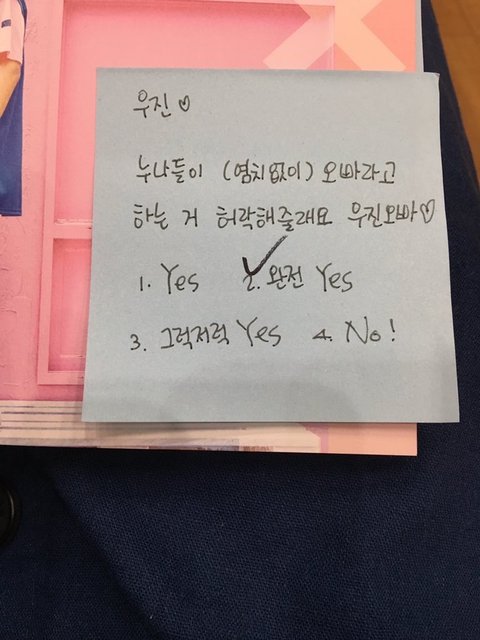 우진♡
누나들이 (염치없이) 오빠라고
하는 거 허락해줄래요 우진오빠♡
1. Yes 2. 완전 Yes
3. 그럭저럭 Yes 4. No!